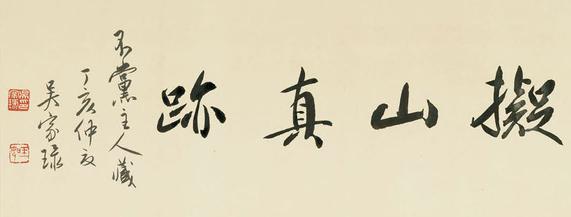 擬山真跡
不黨主人藏
丁亥仲夏
吳家琭